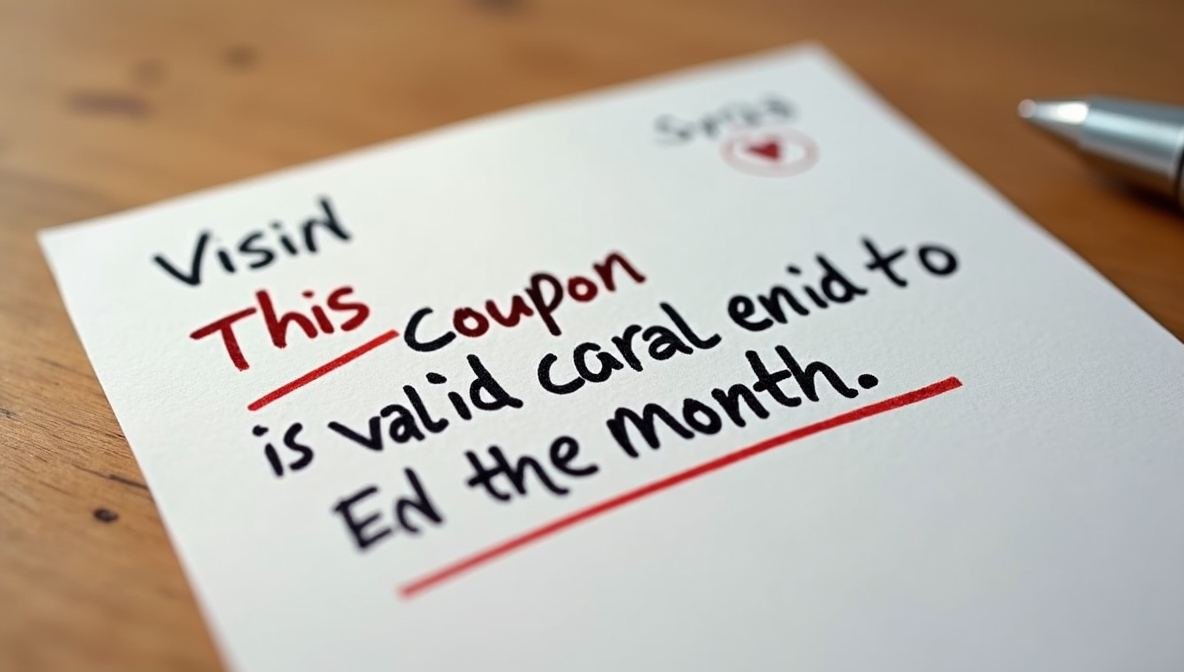 Visin
This coupon
is valid caral enid to
End the month.